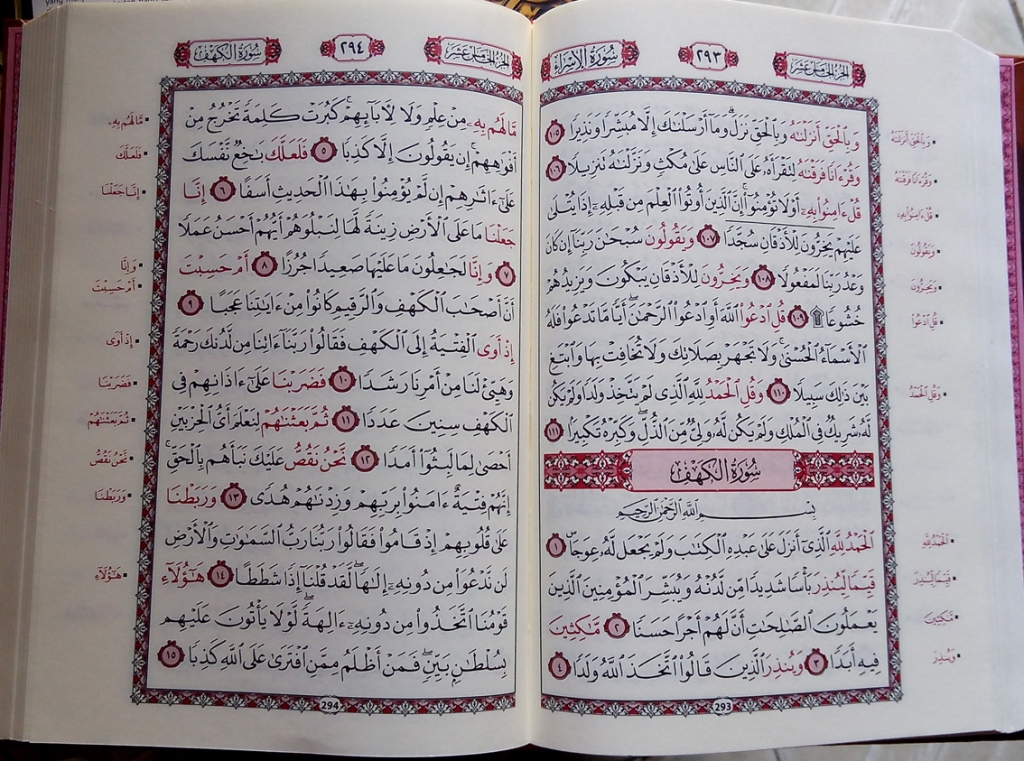 الجُزْءُ الخَامِسَ عَشَرَ ٢٩٣ سُورَةُ الإِسْرَاءِ
وَبِالْحَقِّ أَنزَلْنَٰهُ وَبِالْحَقِّ نَزَلَ ۗ وَمَآ أَرْسَلْنَٰكَ إِلَّا مُبَشِّرًا وَنَذِيرًا ١٠٥
وَقُرْءَانًا فَرَقْنَٰهُ لِتَقْرَأَهُۥ عَلَى النَّاسِ عَلَىٰ مُكْثٍ وَنَزَّلْنَٰهُ تَنزِيلًا ١٠٦
قُلْ ءَامِنُوا۟ بِهِۦٓ أَوْ لَا تُؤْمِنُوٓا۟ ۚ إِنَّ الَّذِينَ أُوتُوا۟ الْعِلْمَ مِن قَبْلِهِۦٓ إِذَا يُتْلَىٰ
عَلَيْهِمْ يَخِرُّونَ لِلْأَذْقَانِ سُجَّدًا ١٠٧ وَيَقُولُونَ سُبْحَٰنَ رَبِّنَآ إِن كَانَ
وَعْدُ رَبِّنَا لَمَفْعُولًا ١٠٨ وَيَخِرُّونَ لِلْأَذْقَانِ يَبْكُونَ وَيَزِيدُهُمْ
خُشُوعًا ۩ ١٠٩ قُلِ ادْعُوا۟ اللَّهَ أَوِ ادْعُوا۟ الرَّحْمَٰنَ ۖ أَيًّا مَّا تَدْعُوا۟ فَلَهُ
الْأَسْمَآءُ الْحُسْنَىٰ ۚ وَلَا تَجْهَرْ بِصَلَاتِكَ وَلَا تُخَافِتْ بِهَا وَابْتَغِ
بَيْنَ ذَٰلِكَ سَبِيلًا ١١٠ وَقُلِ الْحَمْدُ لِلَّهِ الَّذِى لَمْ يَتَّخِذْ وَلَدًا وَلَمْ يَكُن
لَّهُۥ شَرِيكٌ فِى الْمُلْكِ وَلَمْ يَكُن لَّهُۥ وَلِىٌّ مِّنَ الذُّلِّ ۖ وَكَبِّرْهُ تَكْبِيرًۢا ١١١
سُورَةُ الْكَهْفِ
بِسْمِ اللَّهِ الرَّحْمَٰنِ الرَّحِيمِ
الْحَمْدُ لِلَّهِ الَّذِىٓ أَنزَلَ عَلَىٰ عَبْدِهِ الْكِتَٰبَ وَلَمْ يَجْعَل لَّهُۥ عِوَجَا ۜ ١
قَيِّمًا لِّيُنذِرَ بَأْسًا شَدِيدًا مِّن لَّدُنْهُ وَيُبَشِّرَ الْمُؤْمِنِينَ الَّذِينَ
يَعْمَلُونَ الصَّٰلِحَٰتِ أَنَّ لَهُمْ أَجْرًا حَسَنًا ٢ مَّٰكِثِينَ
فِيهِ أَبَدًا ٣ وَيُنذِرَ الَّذِينَ قَالُوا۟ اتَّخَذَ اللَّهُ وَلَدًا ٤
293
وَبِالْحَقِّ أَنزَلْنَٰهُ
وَقُرْءَانًا فَرَقْنَٰهُ
قُلْ ءَامِنُوا۟ بِهِۦٓ
وَيَقُولُونَ
وَيَخِرُّونَ
قُلِ ادْعُوا۟
وَقُلِ الْحَمْدُ
الْحَمْدُ لِلَّهِ
قَيِّمًا لِّيُنذِرَ
مَّٰكِثِينَ
وَيُنذِرَ
الجُزْءُ الخَامِسَ عَشَرَ ٢٩٤ سُورَةُ الْكَهْفِ
مَّا لَهُم بِهِۦ مِنْ عِلْمٍ وَلَا لِءَابَآئِهِمْ ۚ كَبُرَتْ كَلِمَةً تَخْرُجُ مِنْ
أَفْوَٰهِهِمْ ۚ إِن يَقُولُونَ إِلَّا كَذِبًا ٥ فَلَعَلَّكَ بَٰخِعٌ نَّفْسَكَ
عَلَىٰٓ ءَاثَٰرِهِمْ إِن لَّمْ يُؤْمِنُوا۟ بِهَٰذَا الْحَدِيثِ أَسَفًا ٦ إِنَّا
جَعَلْنَا مَا عَلَى الْأَرْضِ زِينَةً لَّهَا لِنَبْلُوَهُمْ أَيُّهُمْ أَحْسَنُ عَمَلًا
٧ وَإِنَّا لَجَٰعِلُونَ مَا عَلَيْهَا صَعِيدًا جُرُزًا ٨ أَمْ حَسِبْتَ
أَنَّ أَصْحَٰبَ الْكَهْفِ وَالرَّقِيمِ كَانُوا۟ مِنْ ءَايَٰتِنَا عَجَبًا ٩
إِذْ أَوَى الْفِتْيَةُ إِلَى الْكَهْفِ فَقَالُوا۟ رَبَّنَآ ءَاتِنَا مِن لَّدُنكَ رَحْمَةً
وَهَيِّئْ لَنَا مِنْ أَمْرِنَا رَشَدًا ١٠ فَضَرَبْنَا عَلَىٰٓ ءَاذَانِهِمْ فِى
الْكَهْفِ سِنِينَ عَدَدًا ١١ ثُمَّ بَعَثْنَٰهُمْ لِنَعْلَمَ أَىُّ الْحِزْبَيْنِ
أَحْصَىٰ لِمَا لَبِثُوٓا۟ أَمَدًا ١٢ نَّحْنُ نَقُصُّ عَلَيْكَ نَبَأَهُم بِالْحَقِّ ۚ
إِنَّهُمْ فِتْيَةٌ ءَامَنُوا۟ بِرَبِّهِمْ وَزِدْنَٰهُمْ هُدًى ١٣ وَرَبَطْنَا
عَلَىٰ قُلُوبِهِمْ إِذْ قَامُوا۟ فَقَالُوا۟ رَبُّنَا رَبُّ السَّمَٰوَٰتِ وَالْأَرْضِ
لَن نَّدْعُوَا۟ مِن دُونِهِۦٓ إِلَٰهًا ۖ لَّقَدْ قُلْنَآ إِذًا شَطَطًا ١٤ هَٰٓؤُلَآءِ
قَوْمُنَا اتَّخَذُوا۟ مِن دُونِهِۦٓ ءَالِهَةً ۖ لَّوْلَا يَأْتُونَ عَلَيْهِم
بِسُلْطَٰنٍۭ بَيِّنٍ ۖ فَمَنْ أَظْلَمُ مِمَّنِ افْتَرَىٰ عَلَى اللَّهِ كَذِبًا ١٥
294
مَّا لَهُم بِهِۦ
فَلَعَلَّكَ
إِنَّا جَعَلْنَا
وَإِنَّا
أَمْ حَسِبْتَ
إِذْ أَوَى
فَضَرَبْنَا
ثُمَّ بَعَثْنَٰهُمْ
نَّحْنُ نَقُصُّ
وَرَبَطْنَا
هَٰٓؤُلَآءِ